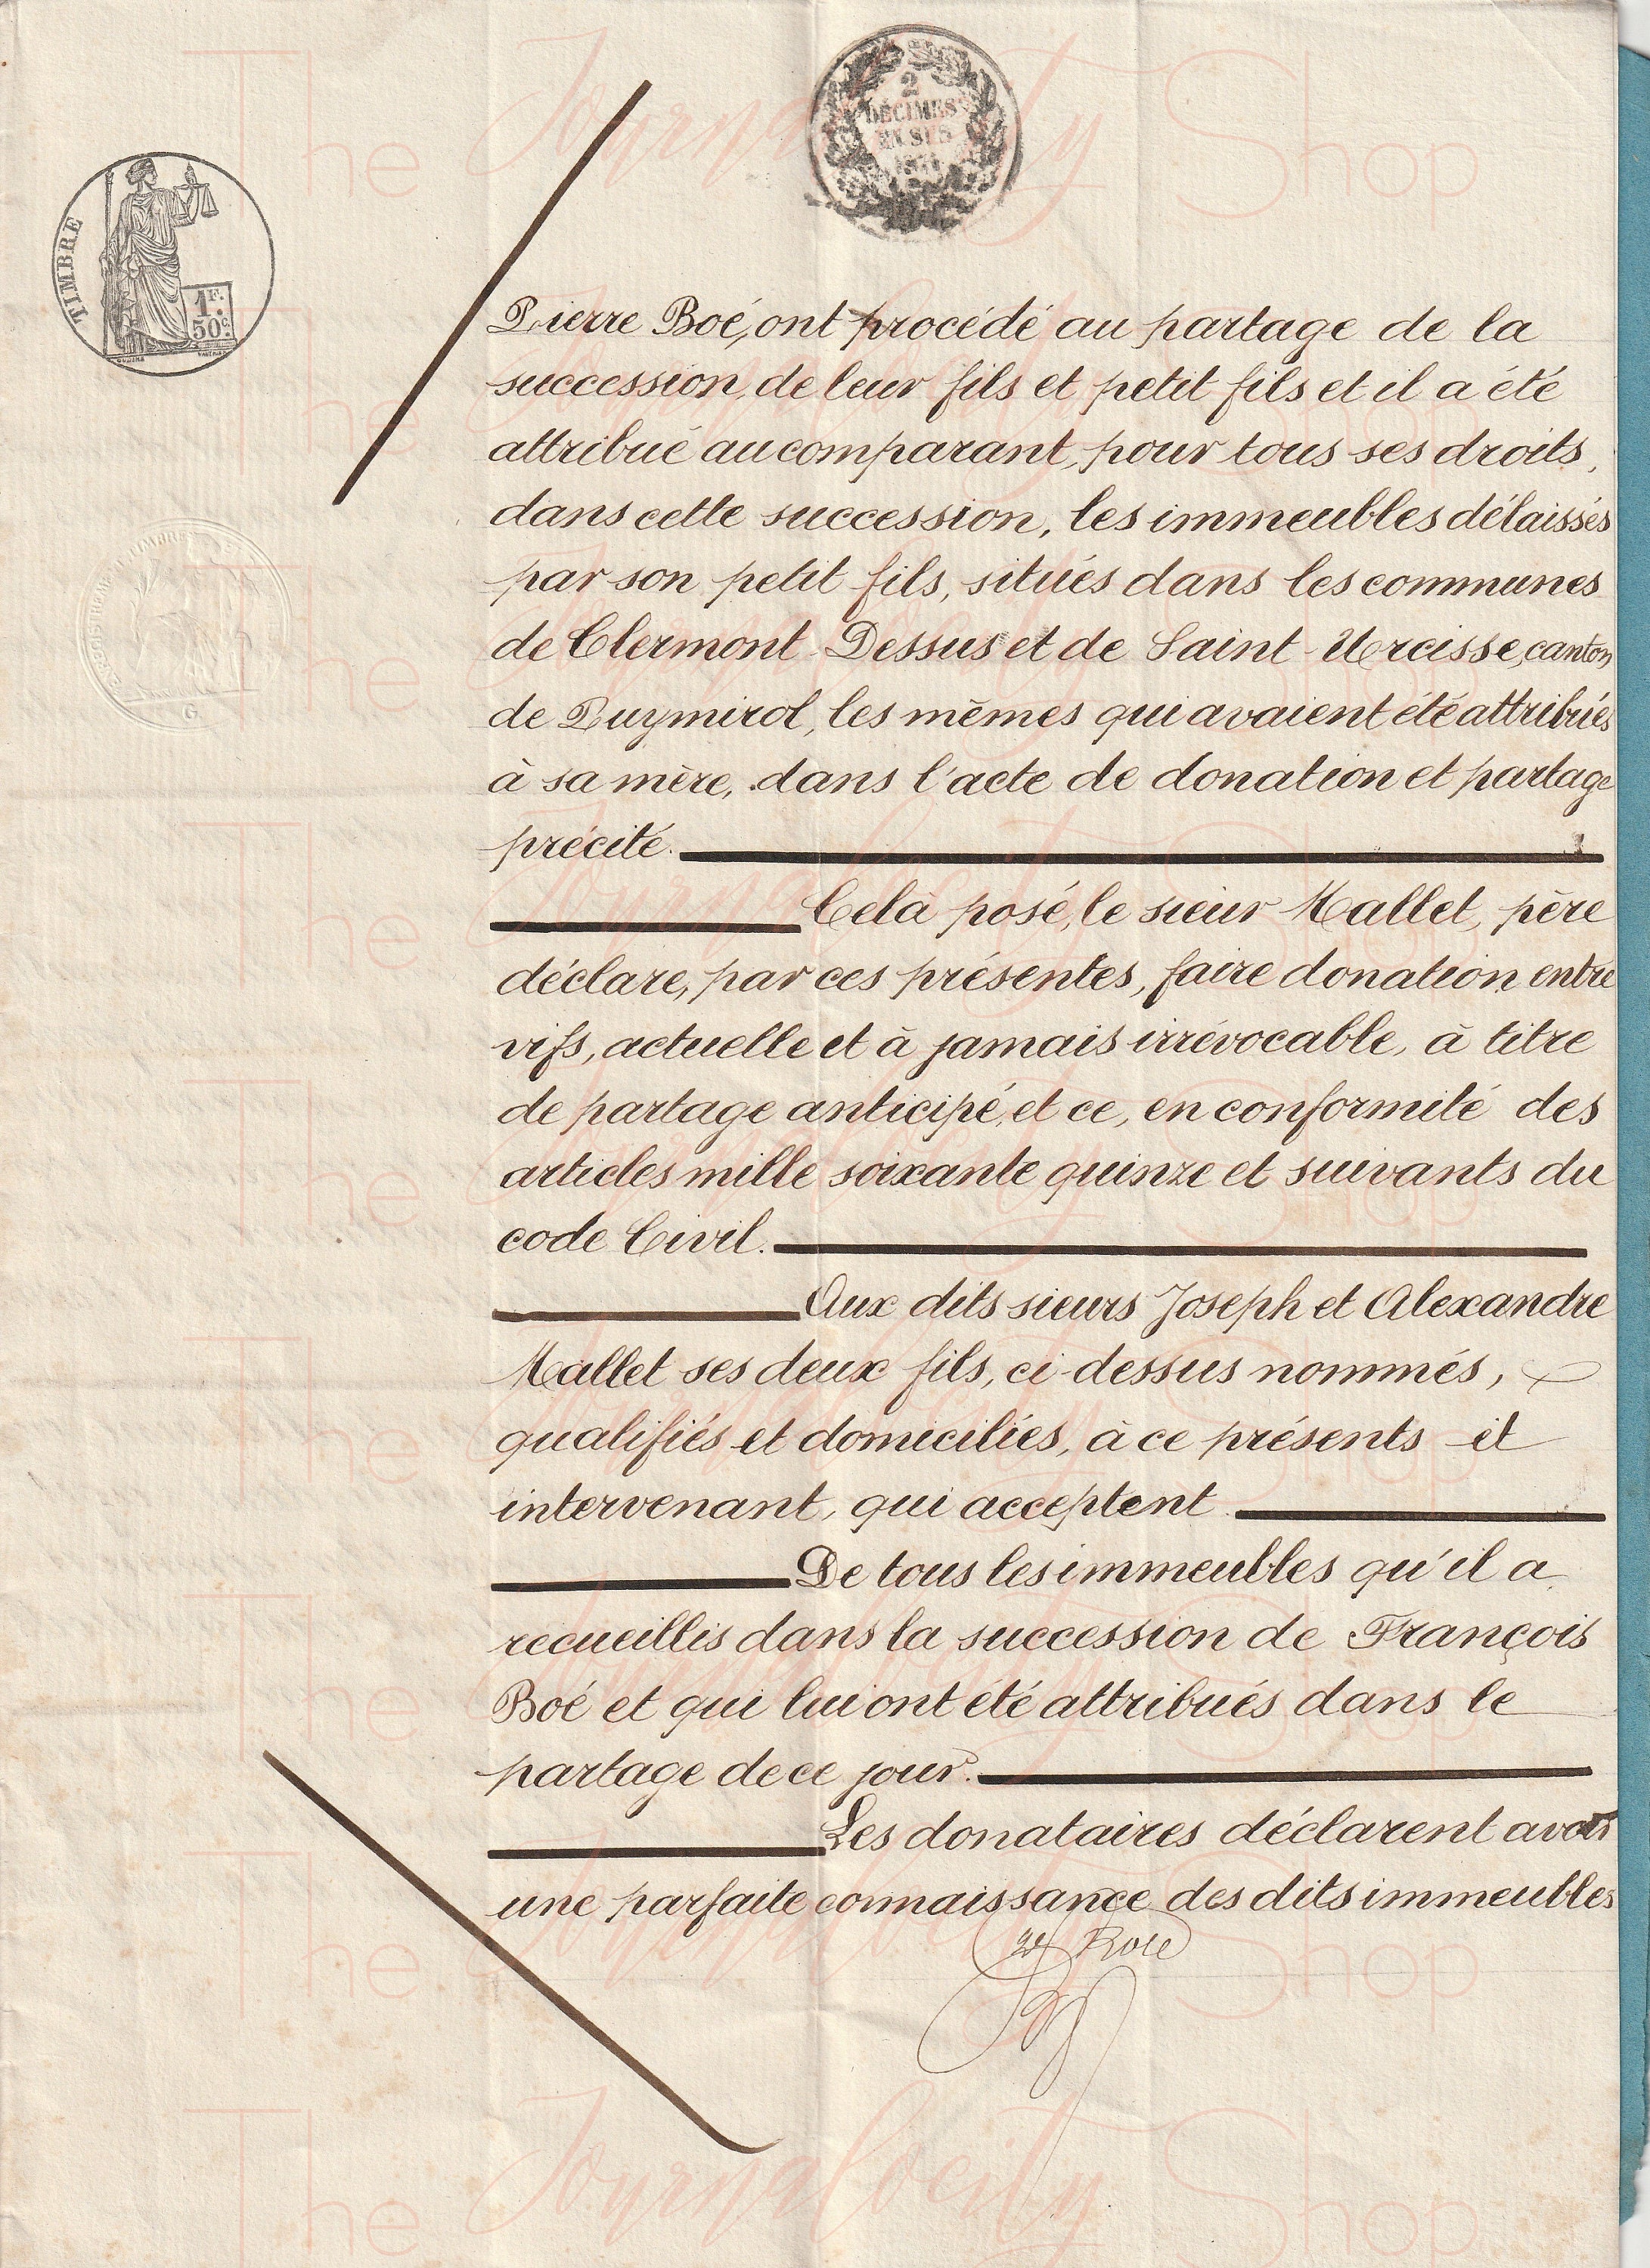 2
DÉCIMES
EN SUS
TIMBRE
1F.
50c.
Pierre Boé, ont procédé au partage de la
succession, de leur fils et petit fils et il a été
attribué au comparant, pour tous ses droits,
dans cette succession, les immeubles délaissés
par son petit fils, situés dans les communes
de Clermont-Dessus et de Saint-Urcisse, canton
de Puymirol, les mêmes qui avaient été attribués
à sa mère, dans l'acte de donation et partage
précité.
Celà posé, le sieur Mallet, père
déclare, par ces présentes, faire donation entre
vifs, actuelle et à jamais irrévocable, à titre
de partage anticipé, et ce, en conformité des
articles mille soixante quinze et suivants du
code Civil.
Aux dits sieurs Joseph et Alexandre
Mallet ses deux fils, ci-dessus nommés,
qualifiés et domiciliés, à ce présents et
intervenant, qui acceptent.
De tous les immeubles qu'il a
recueillis dans la succession de François
Boé et qui lui ont été attribués dans le
partage de ce jour.
Les donataires déclarent avoir
une parfaite connaissance des dits immeubles
2e Role
The Journalocity Shop